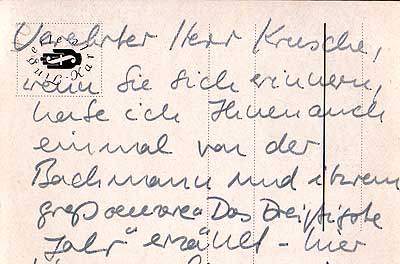 Verehrter Herr Krusche,
wenn Sie sich erinnern,
habe ich Ihnen auch
einmal von der
Bachmann und ihrem
"Das Dreißigste
Jahr" erzählt - hier